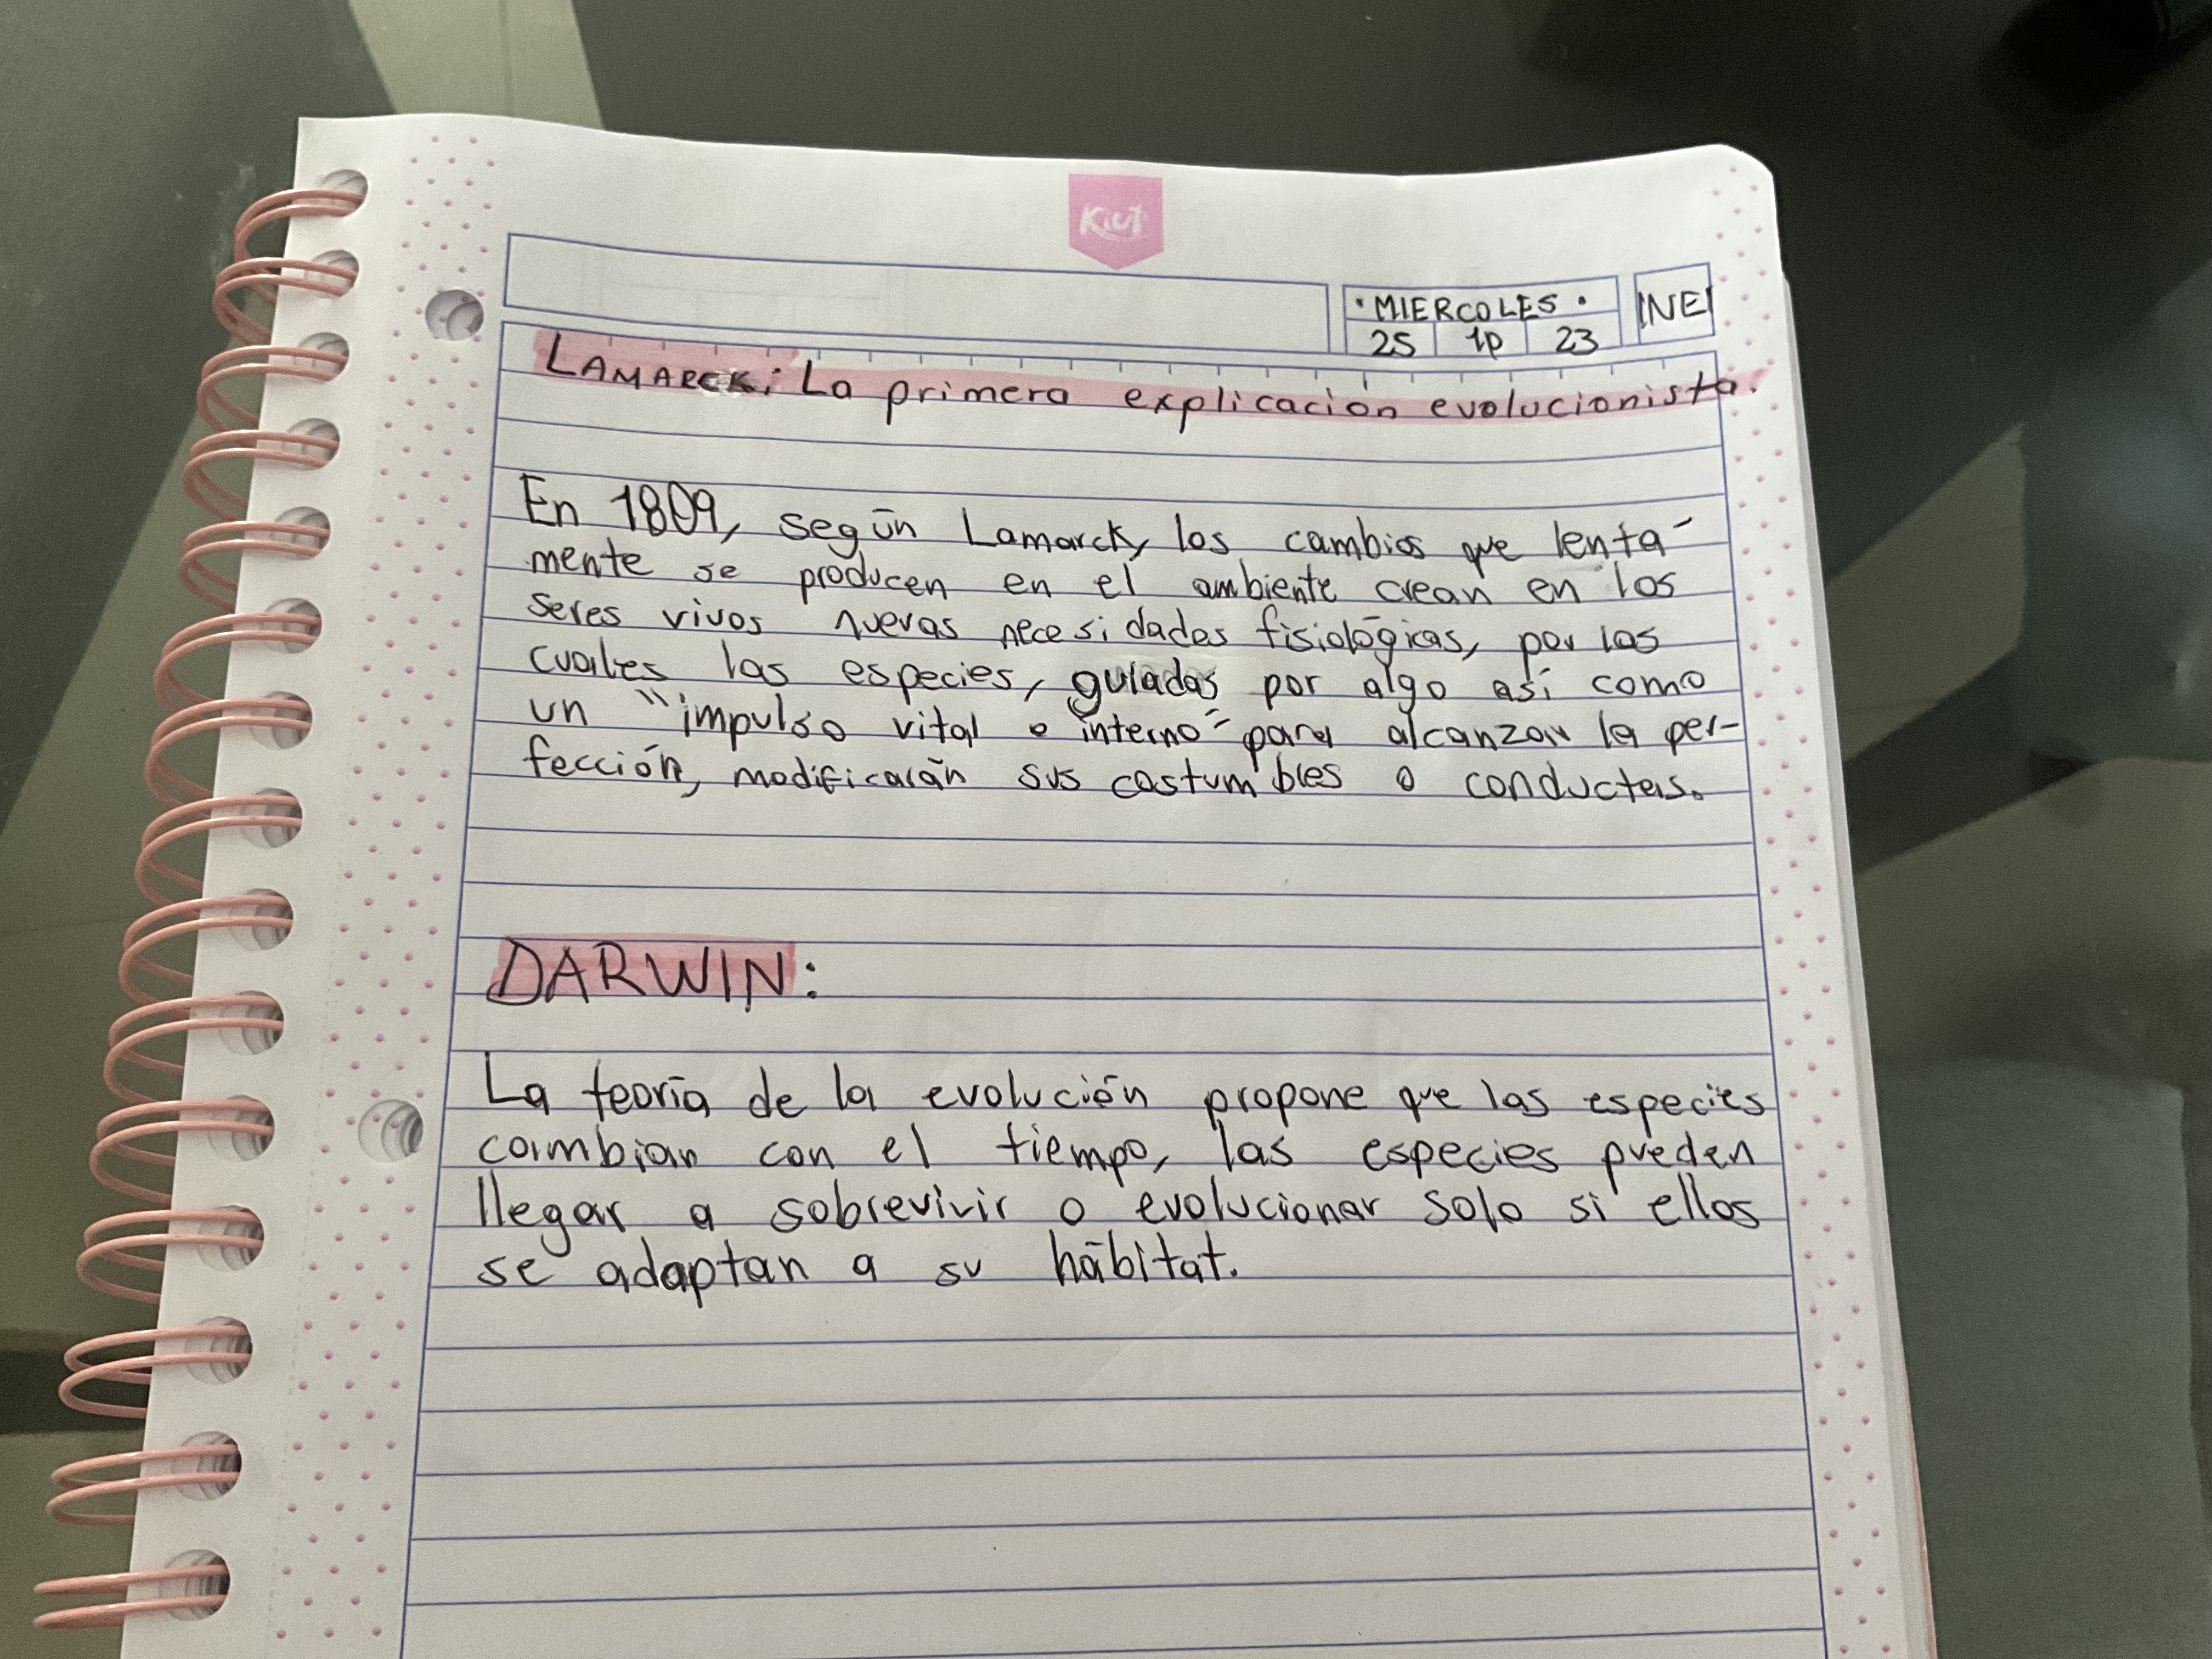 Kiut
• MIERCOLES •
INE
25 1p 23
LAMARCK: La primera explicación evolucionista.
En 1809, según Lamarck, los cambios que lenta-
mente se producen en el ambiente crean en los
seres vivos nuevas necesidades fisiológicas, por las
cuales las especies, guiadas por algo así como
un "impulso vital o interno" para alcanzar la per-
fección, modificarán sus costumbres o conductas.
DARWIN:
La teoría de la evolución propone que las especies
cambian con el tiempo, las especies pueden
llegar a sobrevivir o evolucionar solo si ellos
se adaptan a su hábitat.